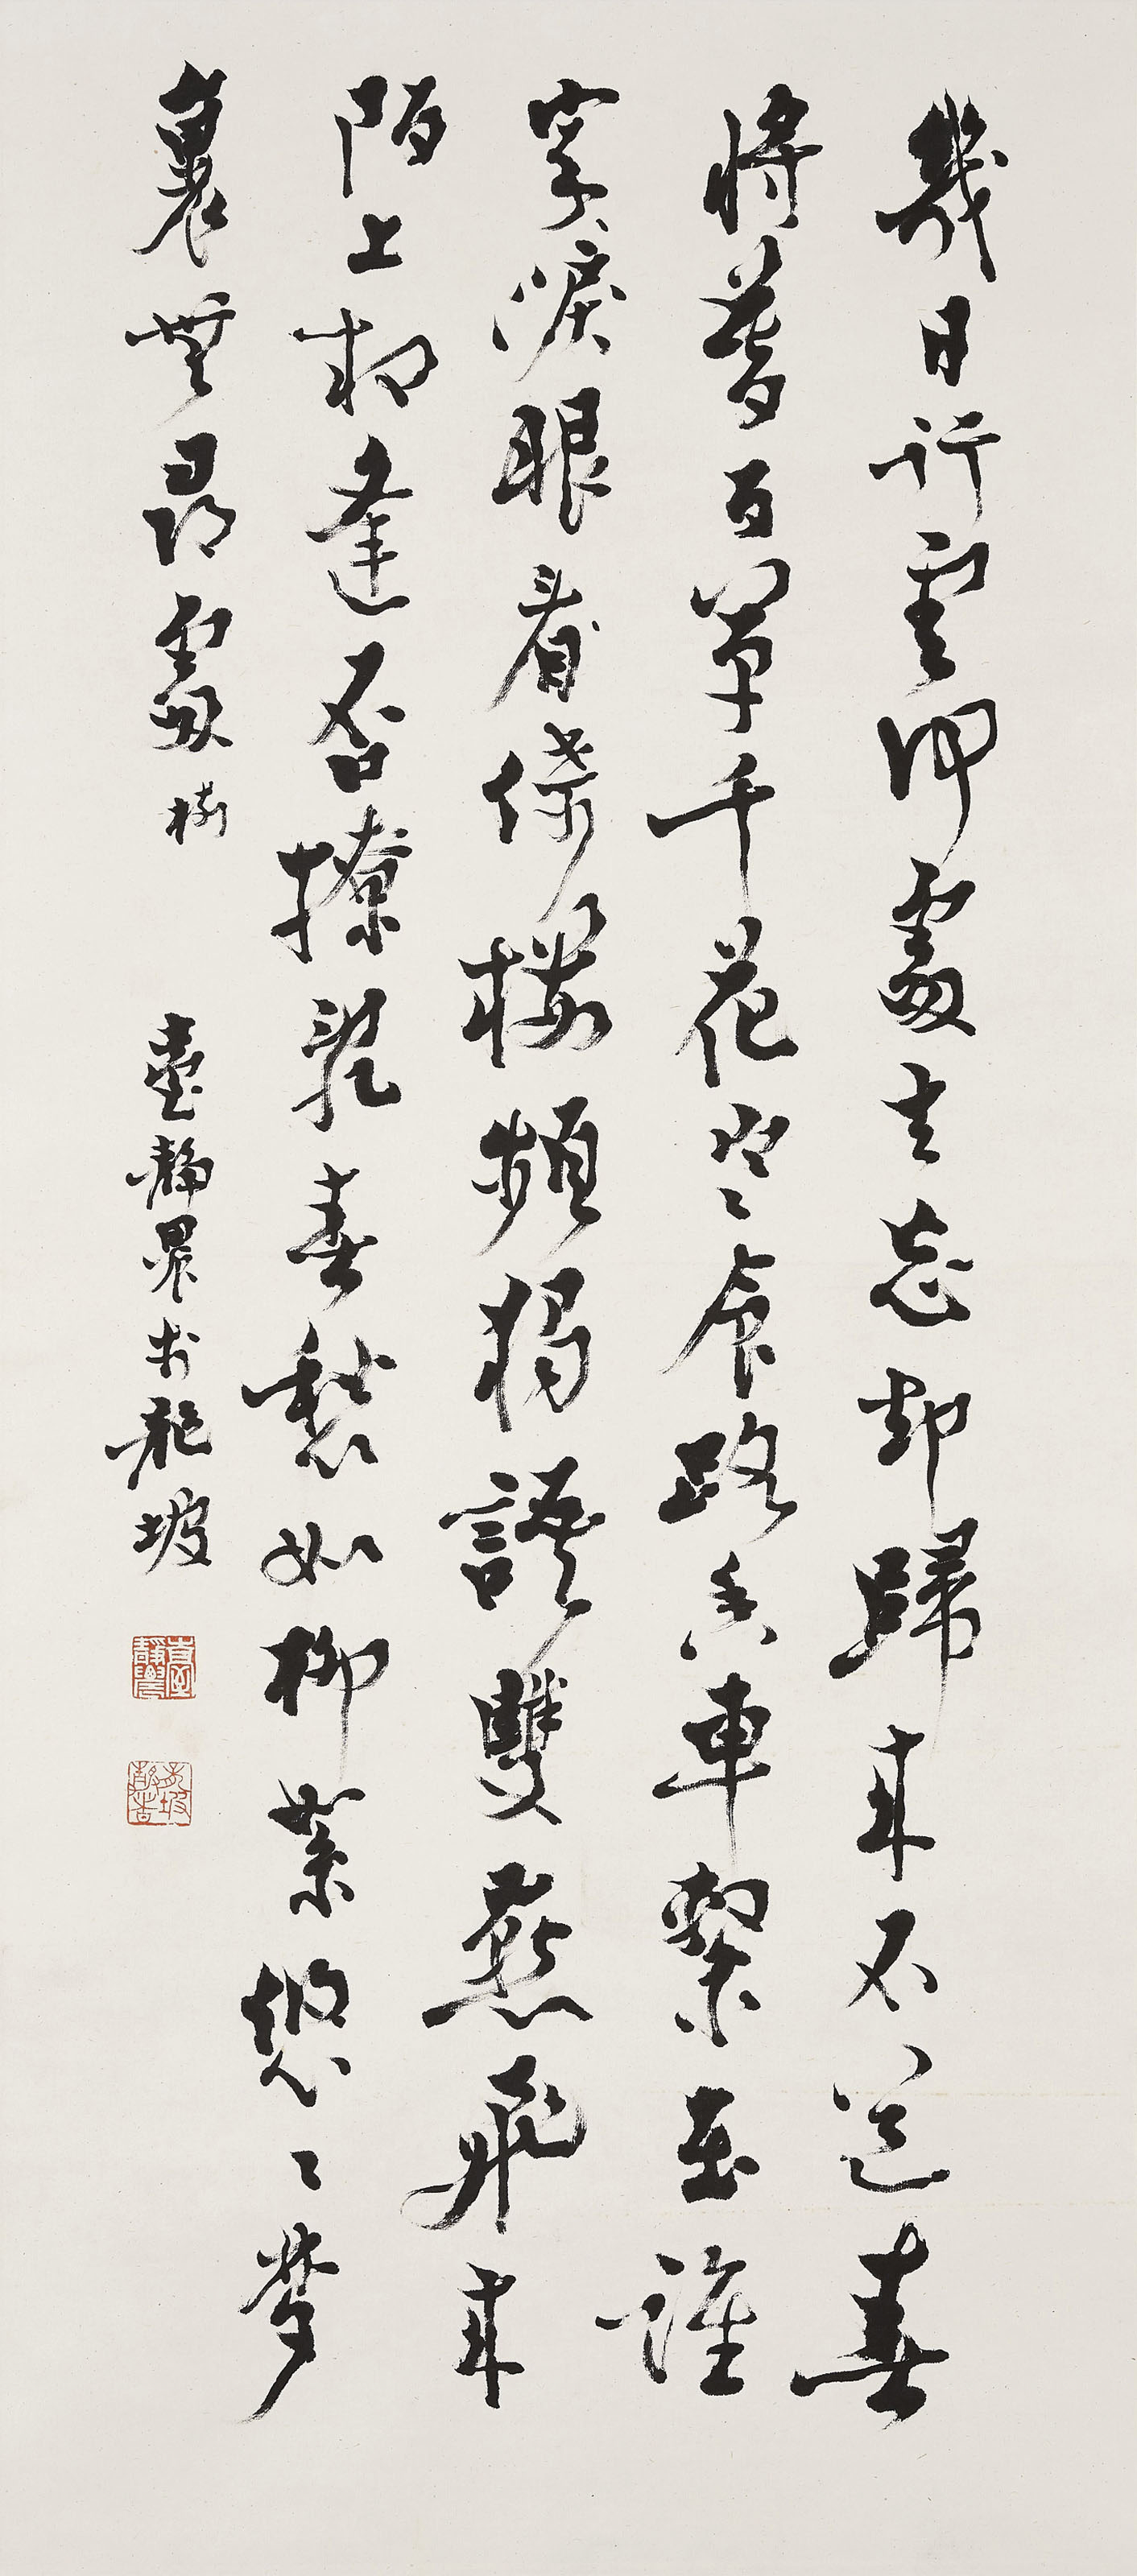 幾日行雲何處去忘却歸來不道春
將暮百草千花寒食路香車繫在誰
家淚眼看倚樓頻獨語雙燕飛來
陌上相逢否撩亂春愁如柳絮悠〻夢
裏無尋處樹 臺靜農於龍坡
臺靜農